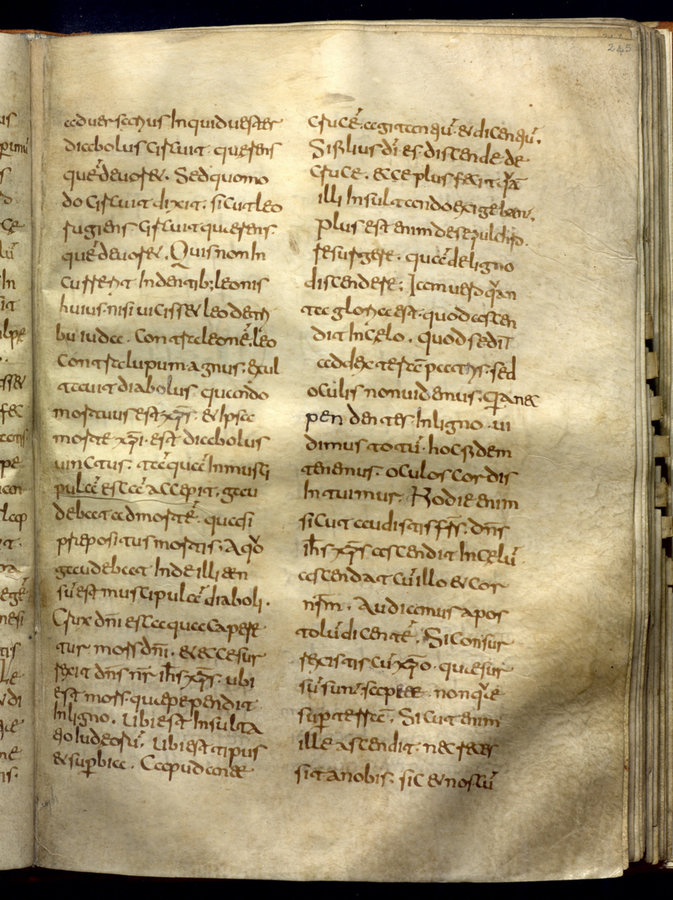 245
aduersarius Inquid uester
diabolus circuit querens
quē deuoret. Sed quomo
do circuit dixit. sicut leo
rugiens circuit querens
quē deuoret. Quis non In
curreret Indentib; leonis
huius. nisi uicisset leo detri
bu iudae. Contra leonē. leo
Contra lupum agnus. exul
tauit diabolus quando
mortuus est xp̄s. & Ipsa
morte xp̄i. est diabolus
uinctus. tāquā In musci
pula esca accepit. gau
debat ad mortē. quasi
prepositus mortis. A q̊
gaudebat Inde illi ten
sū est muscipula diaboli.
Crux dn̄i esca qua capere
tur mors dn̄i. & ecce sur
rexit dn̄s nr̄ ih̄s xp̄s. ubi
est mors. que pependit
Inligno. ubi est Insulta
tio iudeorū. ubi est tipus
& superbia. Capud
crucē. agitantiū. & dicentiū.
Si filius dī es discende de
cruce. ecce plus fecit q̄ā
illi Insultando exigebant.
plus est enim de sepulchro.
resurgere. quā deligno
discendere. Iam uero q̄an
ta gloria est. quod ascen
dit In cęlo. quod sedit
ad dexterā patris. sed
oculis non uidemus. q̄a nec
pendentes Inligno. ui
dimus totū. hoc fidem
tenemus. oculos cordis
Inturmus. Hodie enim
sicut audistis fr̄s. dn̄s
ih̄s xp̄s ascendit In cęlū
ascendat cū illo & cor
nr̄m. Audiamus apos
tolū dicentē. Si consur
rexistis cū xp̄o. que sur
sū sunt sapite. non que
sup terrā. Sicut enim
ille ascendit. nec reces
sit anobis. sic & nos cū